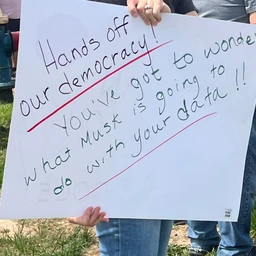 Hands off
our democracy!
You've got to wonde
what Musk is going to
do with your data!!